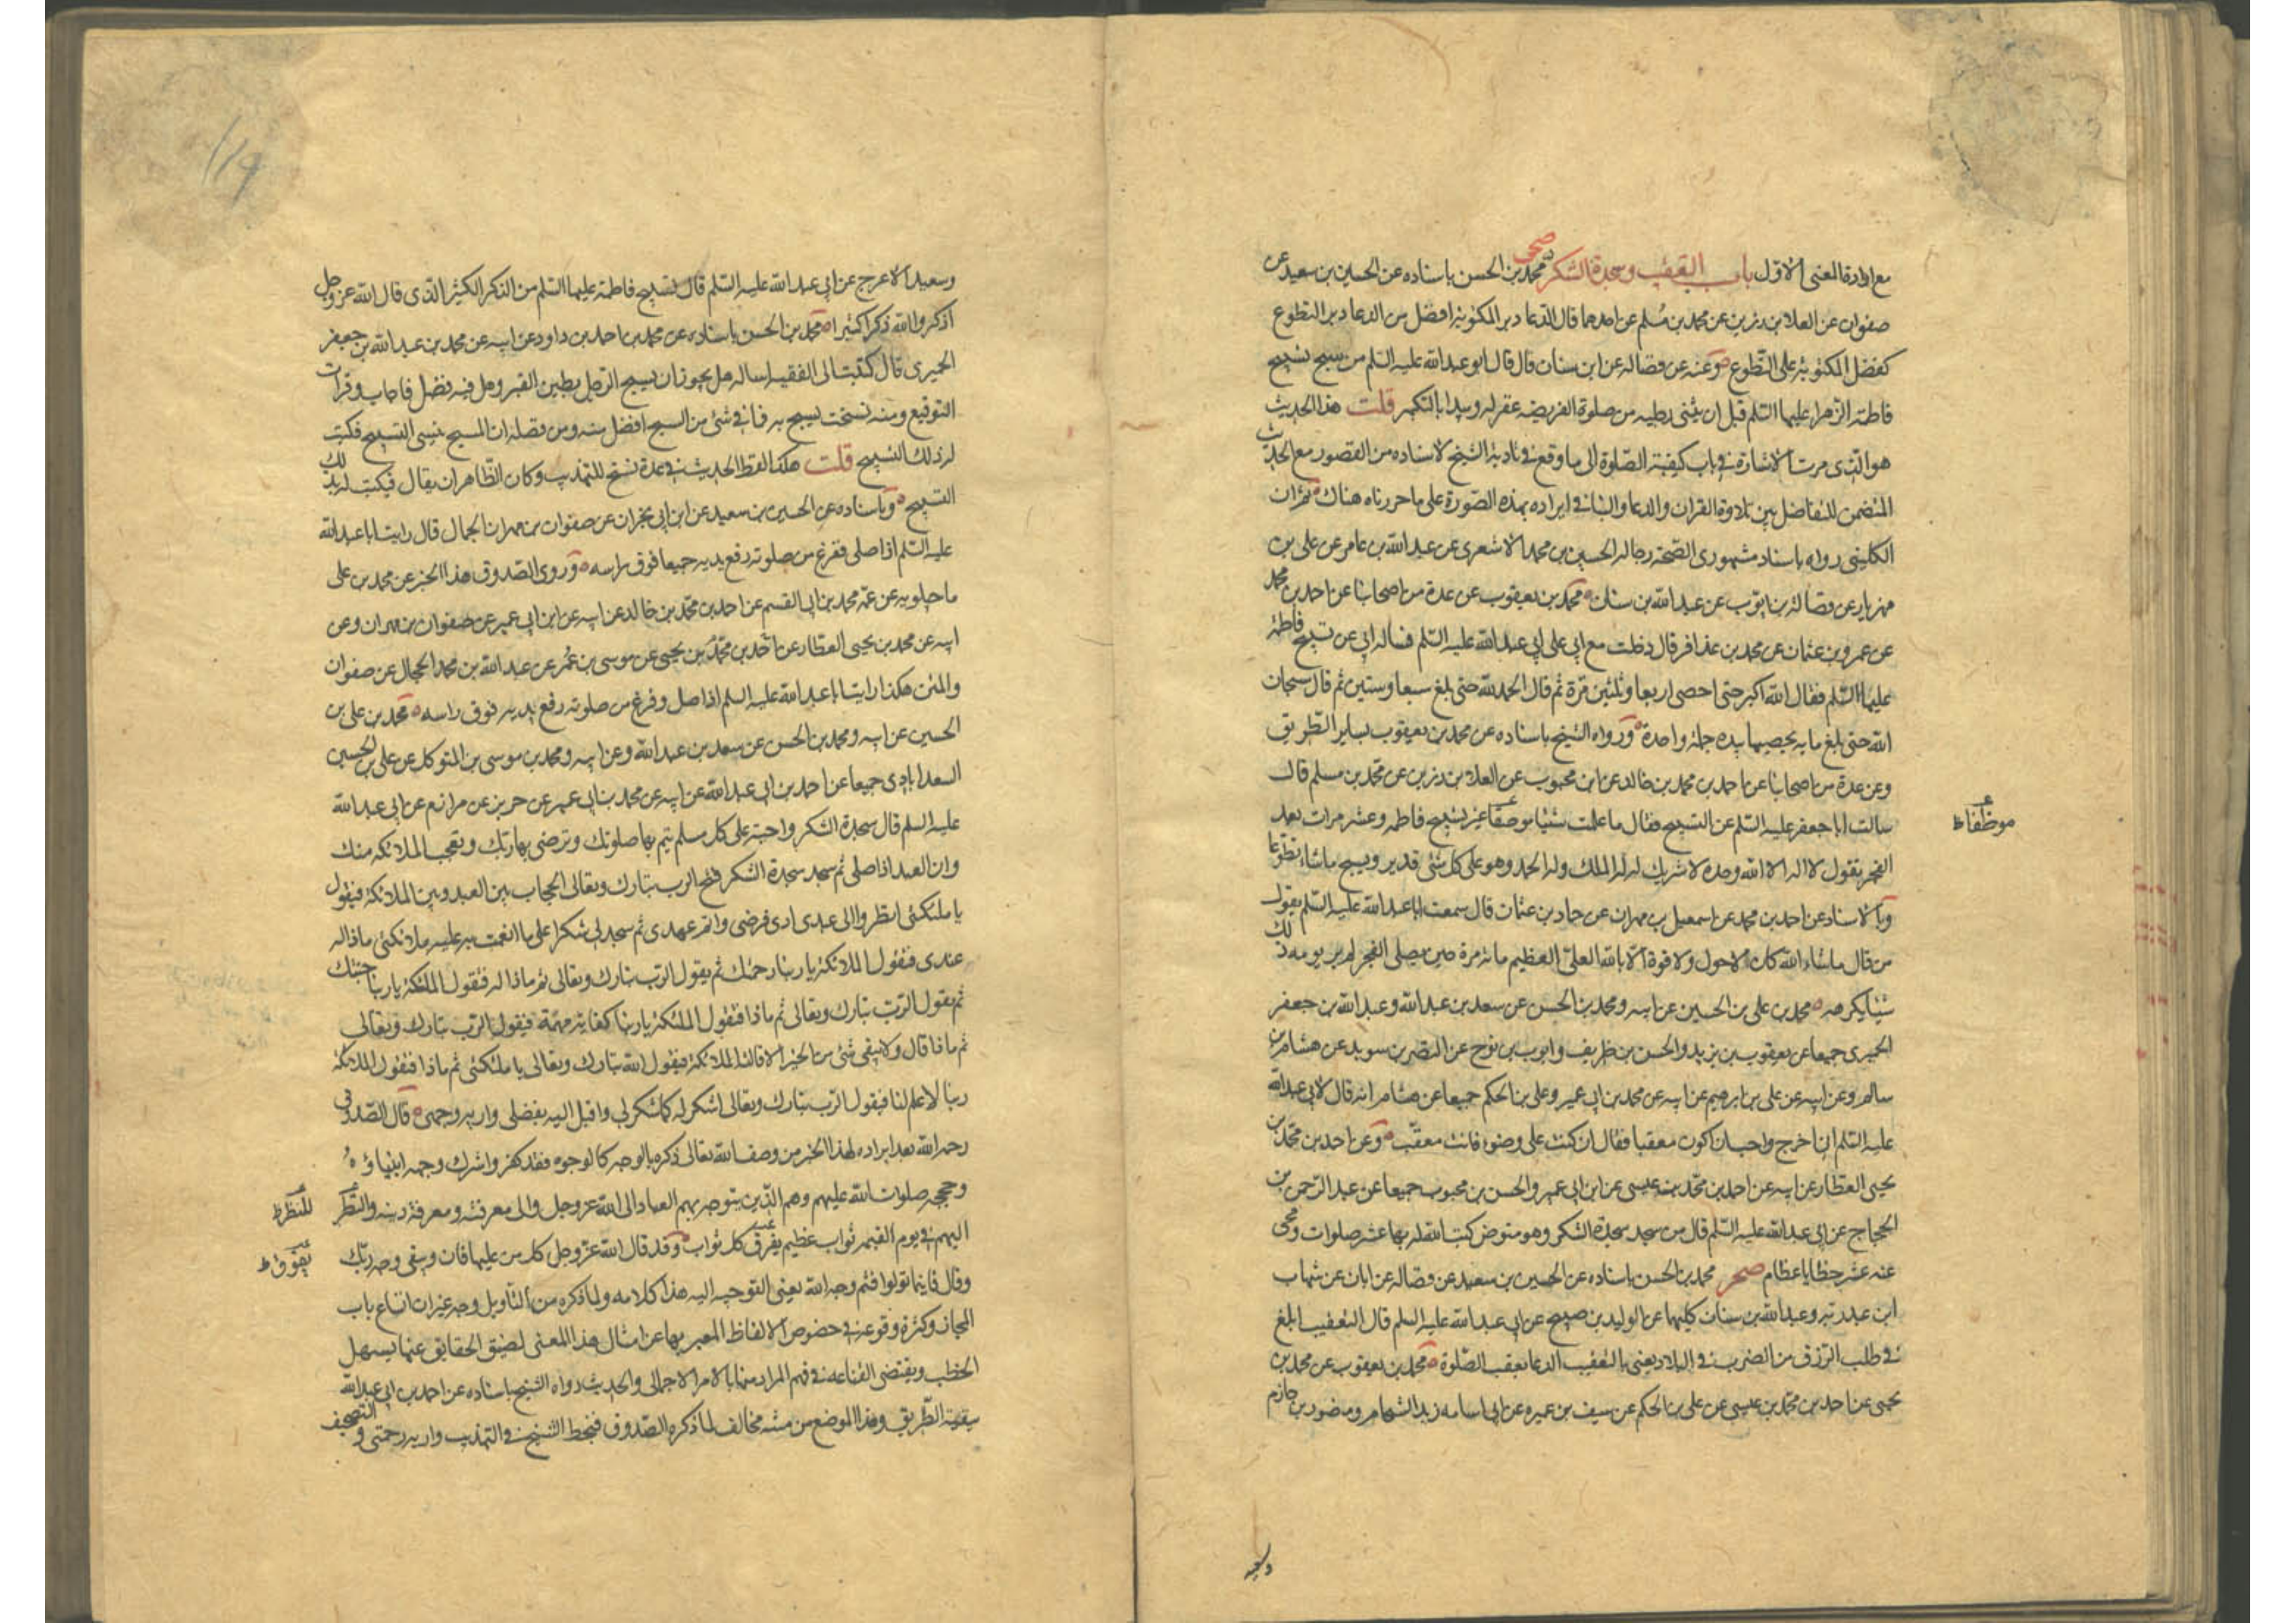 مع ارادة المعنى الاول باب التعقيب وسجدة الشكر صحى محمد بن الحسن باسناده عن الحسين بن سعيد عن
صفوان عن العلا بن رزين عن محمد بن مسلم عن احدهما قال الدعا دبر المكتوبة افضل من الدعا دبر التطوع
كفضل المكتوبة على التطوع وعنه عن فضاله عن ابن سنان قال قال ابو عبد الله عليه السلم من سبح تسبيح
فاطمة الزهراء عليها السلم قبل ان يثنى رجليه من صلوة الفريضه غفر له ويبدا بالتكبير قلت هذا الحديث
هو الذى مرت الاشارة فى باب كيفية الصلوة الى ما وقع فى تادية الشيخ لاسناده من القصور مع الحديث
المتضمن للتفاضل بين تلاوة القران والدعا والبنا فى ايراده بهذه الصورة على ما حررناه هناك ثم ان
الكلينى رواه باسناد مشهورى الصحة رجاله الحسين بن محمد الاشعرى عن عبد الله بن عامر عن على بن
مهزيار عن فضالة بن ايوب عن عبد الله بن سنان محمد بن يعقوب عن عدة من اصحابنا عن احمد بن محمد
عن عمرو بن عثمان عن محمد بن عذافر قال دخلت مع ابى على ابى عبد الله عليه السلم فساله ابى عن تسبيح فاطمة
عليها السلم فقال الله اكبر حتى احصى اربعا وثلثين مرة ثم قال الحمد لله حتى بلغ سبعا وستين ثم قال سبحان
الله حتى بلغ مايه يحصيها بيده جملة واحدة ورواه الشيخ باسناده عن محمد بن يعقوب بساير الطريق
وعن عدة من اصحابنا عن احمد بن محمد بن خالد عن ابن محبوب عن العلا بن رزين عن محمد بن مسلم قال
سالت ابا جعفر عليه السلم عن التسبيح فقال ما علمت شيئا موصفا غير تسبيح فاطمه وعشر مرات بعد
موظفا ظ
الفجر يقول لا اله الا الله وحده لا شريك له له الملك وله الحمد وهو على كل شئ قدير ويسبح ما شاء تطوعا
وبالاسناد عن احمد بن محمد عن اسمعيل بن مهران عن حماد بن عثمان قال سمعت ابا عبد الله عليه السلم يقول
من قال ما شاء الله كان لا حول ولا قوة الا بالله العلى العظيم مائة مرة حين يصلى الفجر لم ير يومه ذلك
شيئا يكرهه محمد بن على بن الحسين عن ابيه ومحمد بن الحسن عن سعد بن عبد الله وعبد الله بن جعفر
الحميرى جميعا عن يعقوب بن يزيد والحسن بن ظريف وايوب بن نوح عن النضر بن سويد عن هشام بن
سالم وعن ابيه عن على بن ابرهيم عن ابيه عن محمد بن ابى عمير وعلى بن الحكم جميعا عن هشام انه قال لابى عبد الله
عليه السلم انى اخرج واحب ان اكون معقبا فقال ان كنت على وضوء فانت معقب وعن احمد بن محمد بن
يحيى العطار عن ابيه عن احمد بن محمد بن عيسى عن ابن ابى عمير والحسن بن محبوب جميعا عن عبد الرحمن بن
الحجاج عن ابى عبد الله عليه السلم قال من سجد سجدة الشكر وهو متوض كتب الله له بها عشر صلوات ومحى
عنه عشر خطايا عظام صحر محمد بن الحسن باسناده عن الحسين بن سعيد عن فضاله عن ابان عن شهاب
ابن عبد ربه وعبد الله بن سنان كليهما عن الوليد بن صبيح عن ابى عبد الله عليه السلم قال التعقيب ابلغ
فى طلب الرزق من الضرب فى البلاد يعنى بالتعقيب الدعا بعقب الصلوة محمد بن يعقوب عن محمد بن
يحيى عن احمد بن محمد بن عيسى عن على بن الحكم عن سيف بن عميره عن ابى اسامه زيد الشحام ومنصور بن حازم
وسعيد
وسعيد الاعرج عن ابى عبد الله عليه السلم قال تسبيح فاطمة عليها السلم من الذكر الكثير الذى قال الله عز وجل
اذكروا الله ذكرا كثيرا محمد بن الحسن باسناده عن محمد بن احمد بن داود عن ابيه عن محمد بن عبد الله بن جعفر
الحميرى قال كتبت الى الفقيه اساله هل يجوز ان يسبح الرجل بطين القبر وهل فيه فضل فاجاب وقرات
التوقيع ومنه نسخت يسبح به فما فى شئ من السبح افضل منه ومن فضله ان المسبح ينسى التسبيح فكتب
له ذلك التسبيح قلت هكذا لفظ الحديث فى عدة نسخ للتهذيب وكان الظاهر ان يقال فيكتب له بذلك
التسبيح وباسناده عن الحسين بن سعيد عن ابن ابى نجران عن صفوان بن مهران الجمال قال رايت ابا عبد الله
عليه السلم اذا صلى ففرغ من صلوته رفع يديه جميعا فوق راسه وروى الصدوق هذا الخبر عن محمد بن على
ماجيلويه عن عمه محمد بن ابى القسم عن احمد بن محمد بن خالد عن ابيه عن ابن ابى عمير عن صفوان بن مهران وعن
ابيه عن محمد بن يحيى العطار عن احمد بن محمد بن يحيى عن موسى بن عمر عن عبد الله بن محمد الحجال عن صفوان
والمتن هكذا رايت ابا عبد الله عليه السلم اذا صلى وفرغ من صلوته رفع يديه فوق راسه محمد بن على بن
الحسين عن ابيه ومحمد بن الحسن عن سعد بن عبد الله وعن ابيه ومحمد بن موسى بن المتوكل عن على بن الحسين
السعدابادى جميعا عن احمد بن ابى عبد الله عن ابيه عن محمد بن ابى عمير عن حريز عن مرازم عن ابى عبد الله
عليه السلم قال سجدة الشكر واجبة على كل مسلم يتم بها صلوتك وترضى بها ربك وتعجب الملائكه منك
وان العبد اذا صلى ثم سجد سجدة الشكر فتح الرب تبارك وتعالى الحجاب بين العبد وبين الملائكة فيقول
يا ملئكتى انظروا الى عبدى ادى فرضى واتم عهدى ثم سجد لى شكرا على ما انعمت به عليه ملائكتى ماذا له
عندى فتقول الملائكة يا ربنا رحمتك ثم يقول الرب تبارك وتعالى ثم ماذا له فتقول الملئكة يا ربنا جنتك
ثم يقول الرب تبارك وتعالى ثم ماذا فتقول الملئكة يا ربنا كفاية مهمة فيقول الرب تبارك وتعالى
ثم ماذا قال ولا يبقى شئ من الخير الا قالته الملائكة فيقول الله تبارك وتعالى يا ملئكتى ثم ماذا فتقول الملائكة
ربنا لا علم لنا فيقول الرب تبارك وتعالى اشكر له كما شكر لى واقبل اليه بفضلى واريه وجهى قال الصدوق
رحمه الله بعد ايراده لهذا الخبر من وصف الله تعالى ذكره بالوجه كالوجوه فقد كفر واشرك ووجهه انبياؤه
وحججه صلوات الله عليهم وهم الذين يتوجه بهم العباد الى الله عز وجل والى معرفته ومعرفة دينه والنظر
للنظر ظ
اليهم فى يوم القيمه ثواب عظيم يفرق كل ثواب وقد قال الله عز وجل كل من عليها فان ويبقى وجه ربك
يفوق ظ
وقال فاينما تولوا فثم وجه الله يعنى التوجه اليه هذا كلامه ولما ذكره من التاويل وجه غير ان اتساع باب
المجاز وكثرة وقوعه فى خصوص الالفاظ المعبر بها عن امثال هذا المعنى لضيق الحقايق عنها يسهل
الخطب ويقتضى القناعه فى فهم المراد منها بالامر الاجمالى والحديث رواه الشيخ باسناده عن احمد بن ابى عبد الله
ببقية الطريق وهذا الموضع من متنه مخالف لما ذكره الصدوق فبخط الشيخ فى التهذيب واريه رحمتى والتصحيف